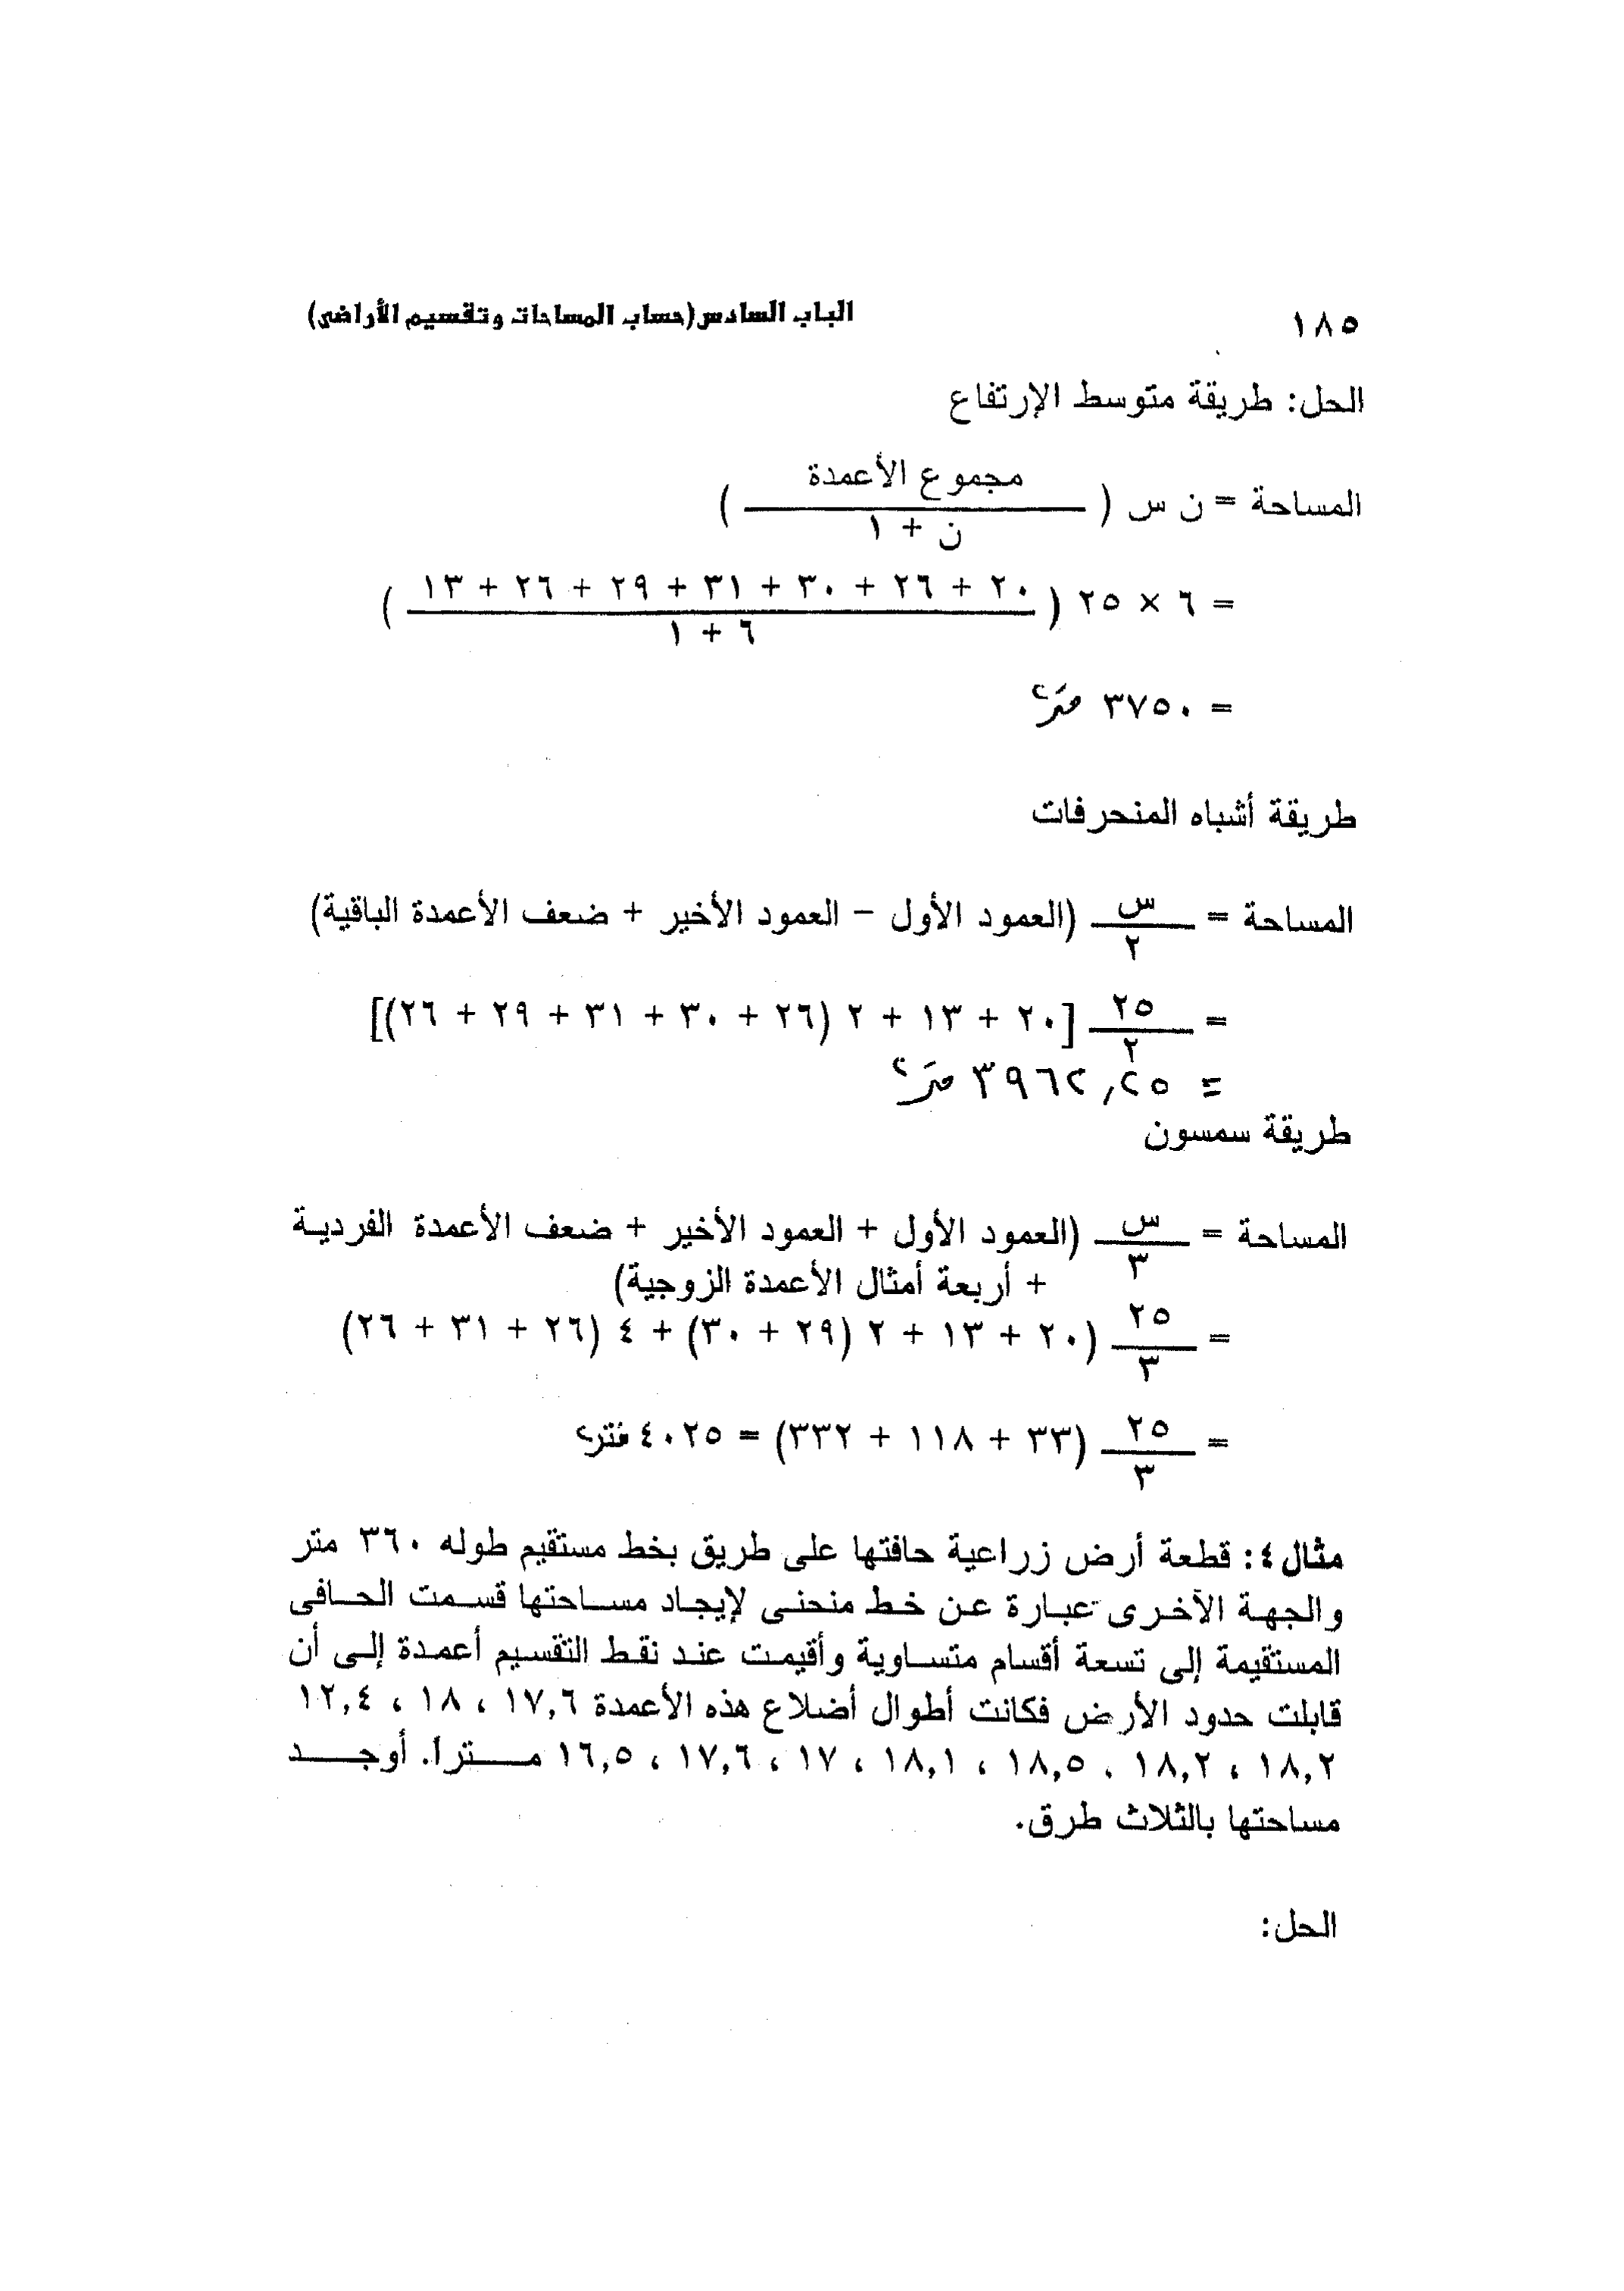 ١٨٥ الباب السادس(حساب المساحات وتقسيم الأراضى)
الحل: طريقة متوسط الإرتفاع
المساحة = ن س ( مجموع الأعمدة / ن + ١ )
= ٦ × ٢٥ ( ٢٠ + ٢٦ + ٣٠ + ٣١ + ٢٩ + ٢٦ + ١٣ / ٦ + ١ )
= ٣٧٥٠ متر٢
طريقة أشباه المنحرفات
المساحة = س / ٢ (العمود الأول – العمود الأخير + ضعف الأعمدة الباقية)
= ٢٥ / ٢ [٢٠ + ١٣ + ٢ (٢٦ + ٣٠ + ٣١ + ٢٩ + ٢٦)]
= ٣٩٦٢,٢٥ متر٢
طريقة سمسون
المساحة = س / ٣ (العمود الأول + العمود الأخير + ضعف الأعمدة الفردية
+ أربعة أمثال الأعمدة الزوجية)
= ٢٥ / ٣ (٢٠ + ١٣ + ٢ (٢٩ + ٣٠) + ٤ (٢٦ + ٣١ + ٢٦)
= ٢٥ / ٣ (٣٣ + ١١٨ + ٣٣٢) = ٤٠٢٥ متر٢
مثال ٤: قطعة أرض زراعية حافتها على طريق بخط مستقيم طوله ٣٦٠ متر
والجهة الآخرى عبارة عن خط منحنى لإيجاد مساحتها قسمت الحافى
المستقيمة إلى تسعة أقسام متساوية وأقيمت عند نقط التقسيم أعمدة إلى أن
قابلت حدود الأرض فكانت أطوال أضلاع هذه الأعمدة ١٧,٦ ، ١٨ ، ١٢,٤
١٨,٢ ، ١٨,٢ ، ١٨,٥ ، ١٨,١ ، ١٧ ، ١٧,٦ ، ١٦,٥ مترا. أوجد
مساحتها بالثلاث طرق.
الحل: